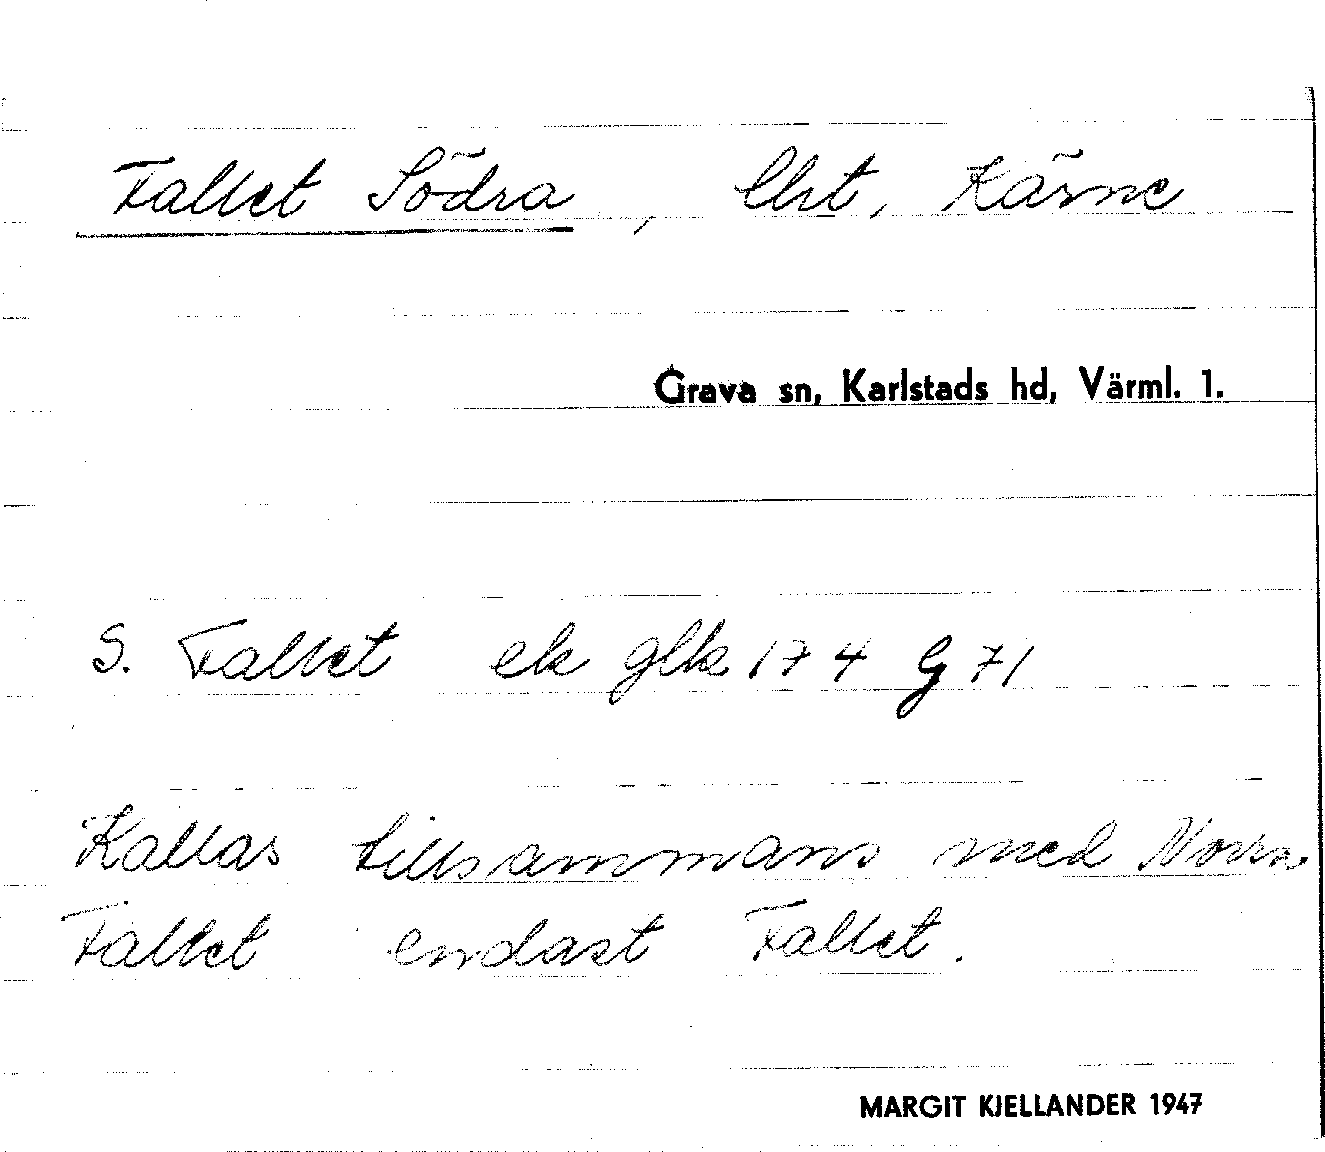 Fallet Södra, lht, Kärne
Grava sn, Karlstads hd, Värml. 1.
S. Fallet ek glk 174 G 71
Kallas tillsammans med Norra
Fallet endast Fallet.
MARGIT KJELLANDER 1947